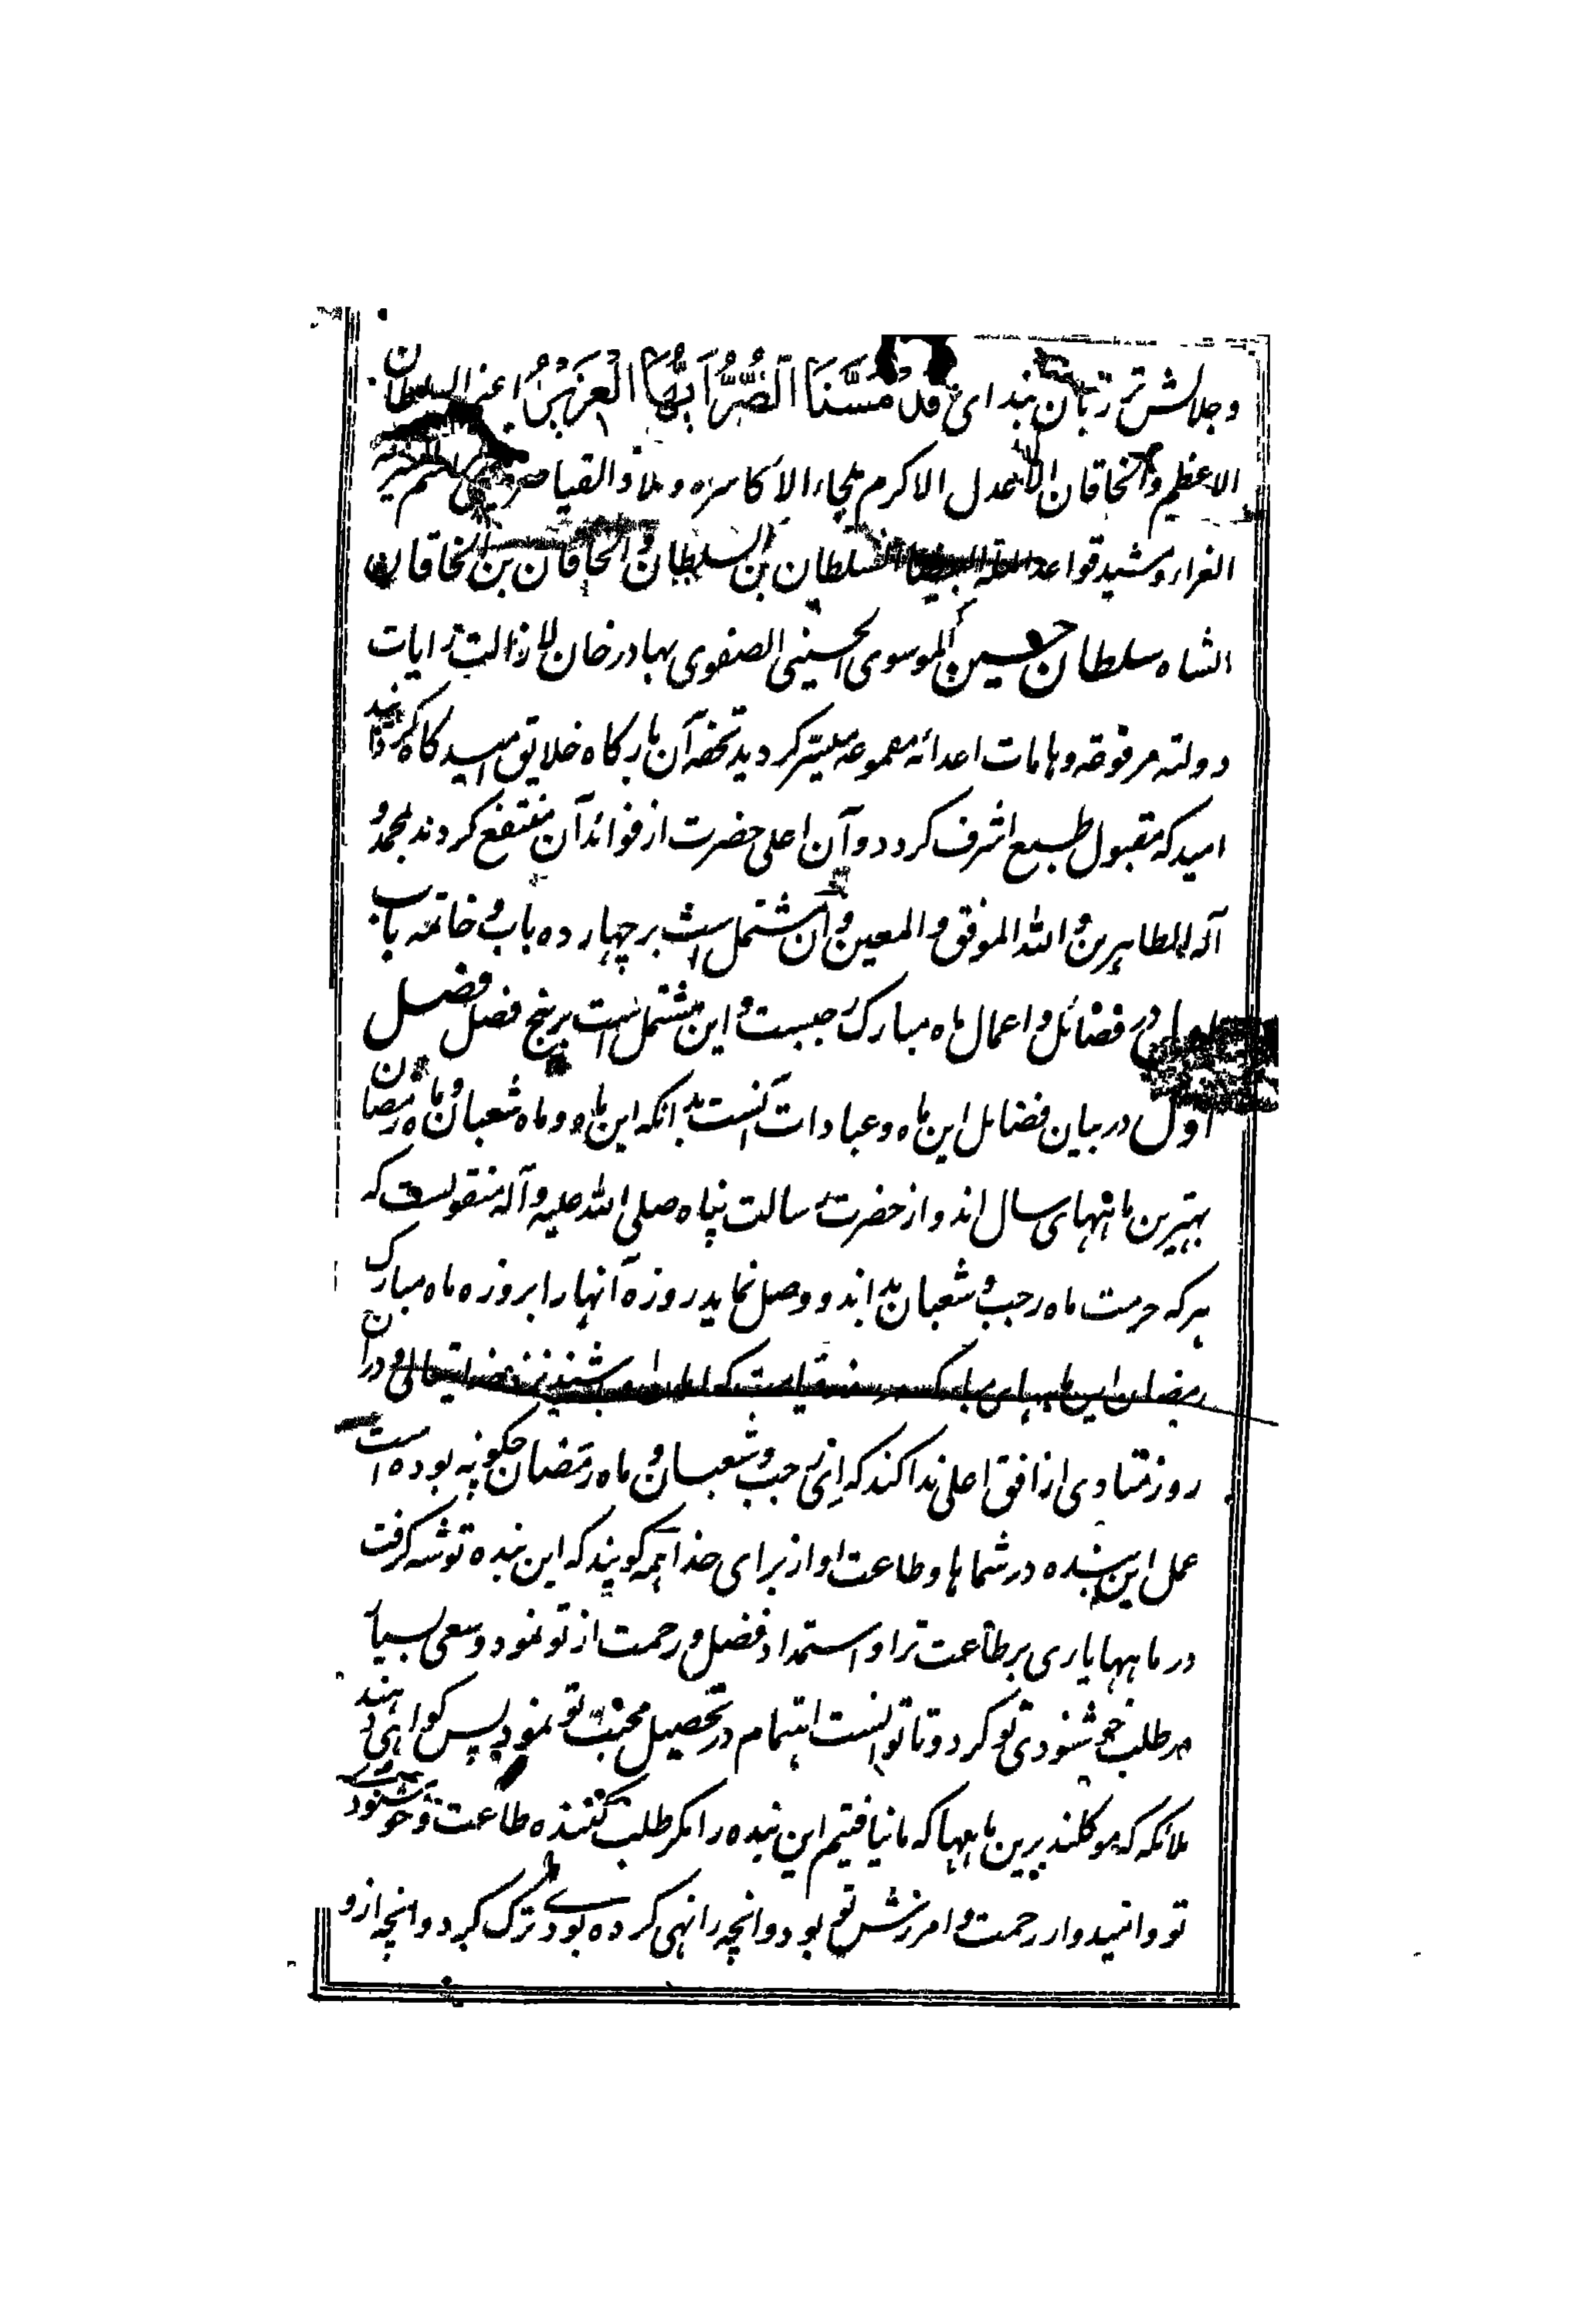 وجلالش تر زبان بندای قد مَسَّنَا الضُّرُّ اَیُّهَا الْعَزِیْزُ اعنی السلطان
الاعظم والخاقان الاعدل الاکرم ملجاء الاکاسره وملاذ القیاصره
الغراء ومشید قواعد الملة البیضا السلطان بن السلطان والخاقان بن الخاقان
الشاه سلطان حسین الموسوی الحسینی الصفوی بهادرخان لا زالت رایات
دولته مرفوعه وهامات اعدائه مقموعه میسّر کردید تحفه آن بارکاه خلایق امید کاه کردانید
امید که مقبول طبع اشرف کردد و آن اعلی حضرت از فوائد آن منتفع کردند بمحمد و
آله الطاهرین و الله الموفق والمعین و آن مشتمل است بر چهارده باب و خاتمه باب
اول در فضائل و اعمال ماه مبارک رجبست و این مشتمل است بر پنج فصل فصل
اول در بیان فضائل این ماه و عبادات آنست بدانکه این ماه و ماه شعبان و ماه رمضان
بهترین ماههای سال اند و از حضرت رسالت پناه صلی الله علیه و آله منقولست که
هر که حرمت ماه رجب و شعبان بداند و وصل نماید روزه آنها را بروزه ماه مبارک
رمضان این ماههای مبارک در روز قیامت کواهان او باشند نزد خدایتعالی و در آن
روز منادی از افق اعلی ندا کند که ای رجب و شعبان و ماه رمضان چکونه بوده است
عمل این بنده در شماها و طاعت او از برای خدا همه کویند که این بنده توشه کرفت
در ماهها یاری بر طاعت ترا و استمداد فضل و رحمت از تو نمود و سعی بسیار
در طلب خوشنودی تو کرد و تا توانست اهتمام در تحصیل محبت تو نمود پس کواهی دهند
ملائکه که موکلند برین ماهها که ما نیافتیم این بنده را مکر طلب کننده طاعت و خوشنودی
تو و امیدوار رحمت و امرزش تو بود و انچه را نهی کرده بودی ترک کرد و انچه ازو